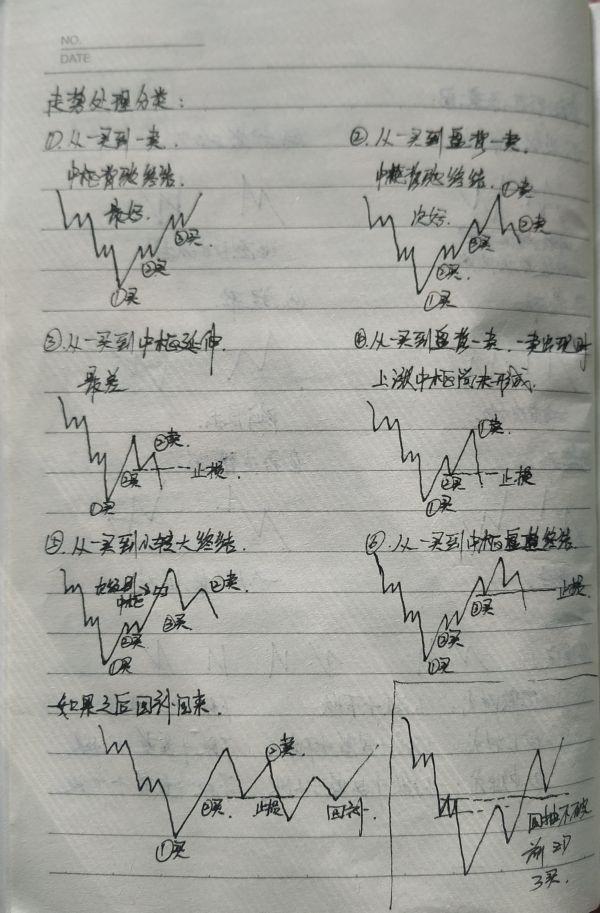 NO.
DATE
走势处理分类：
①.从一买到一卖.
中枢背驰终结.
最好.
③买.
②买.
①买
②.从一买到盘背一卖.
中枢背驰终结.
①卖
次好.
②卖
③买
②买.
①买
③.从一买到中枢延伸.
最差
②卖.
②买
止损.
①买
④.从一买到盘背一卖.一卖出现时
上涨中枢尚未形成.
①卖.
②买
止损
①买
⑤.从一买到小转大终结.
次级别
中枢
②卖.
③买
②买
①买
⑥.从一买到中枢盘整终结.
③买
止损.
②买
①买
如果之后回到回来.
②卖.
②买.
止损
回到.
①买
回抽不破
前ZD
3买.